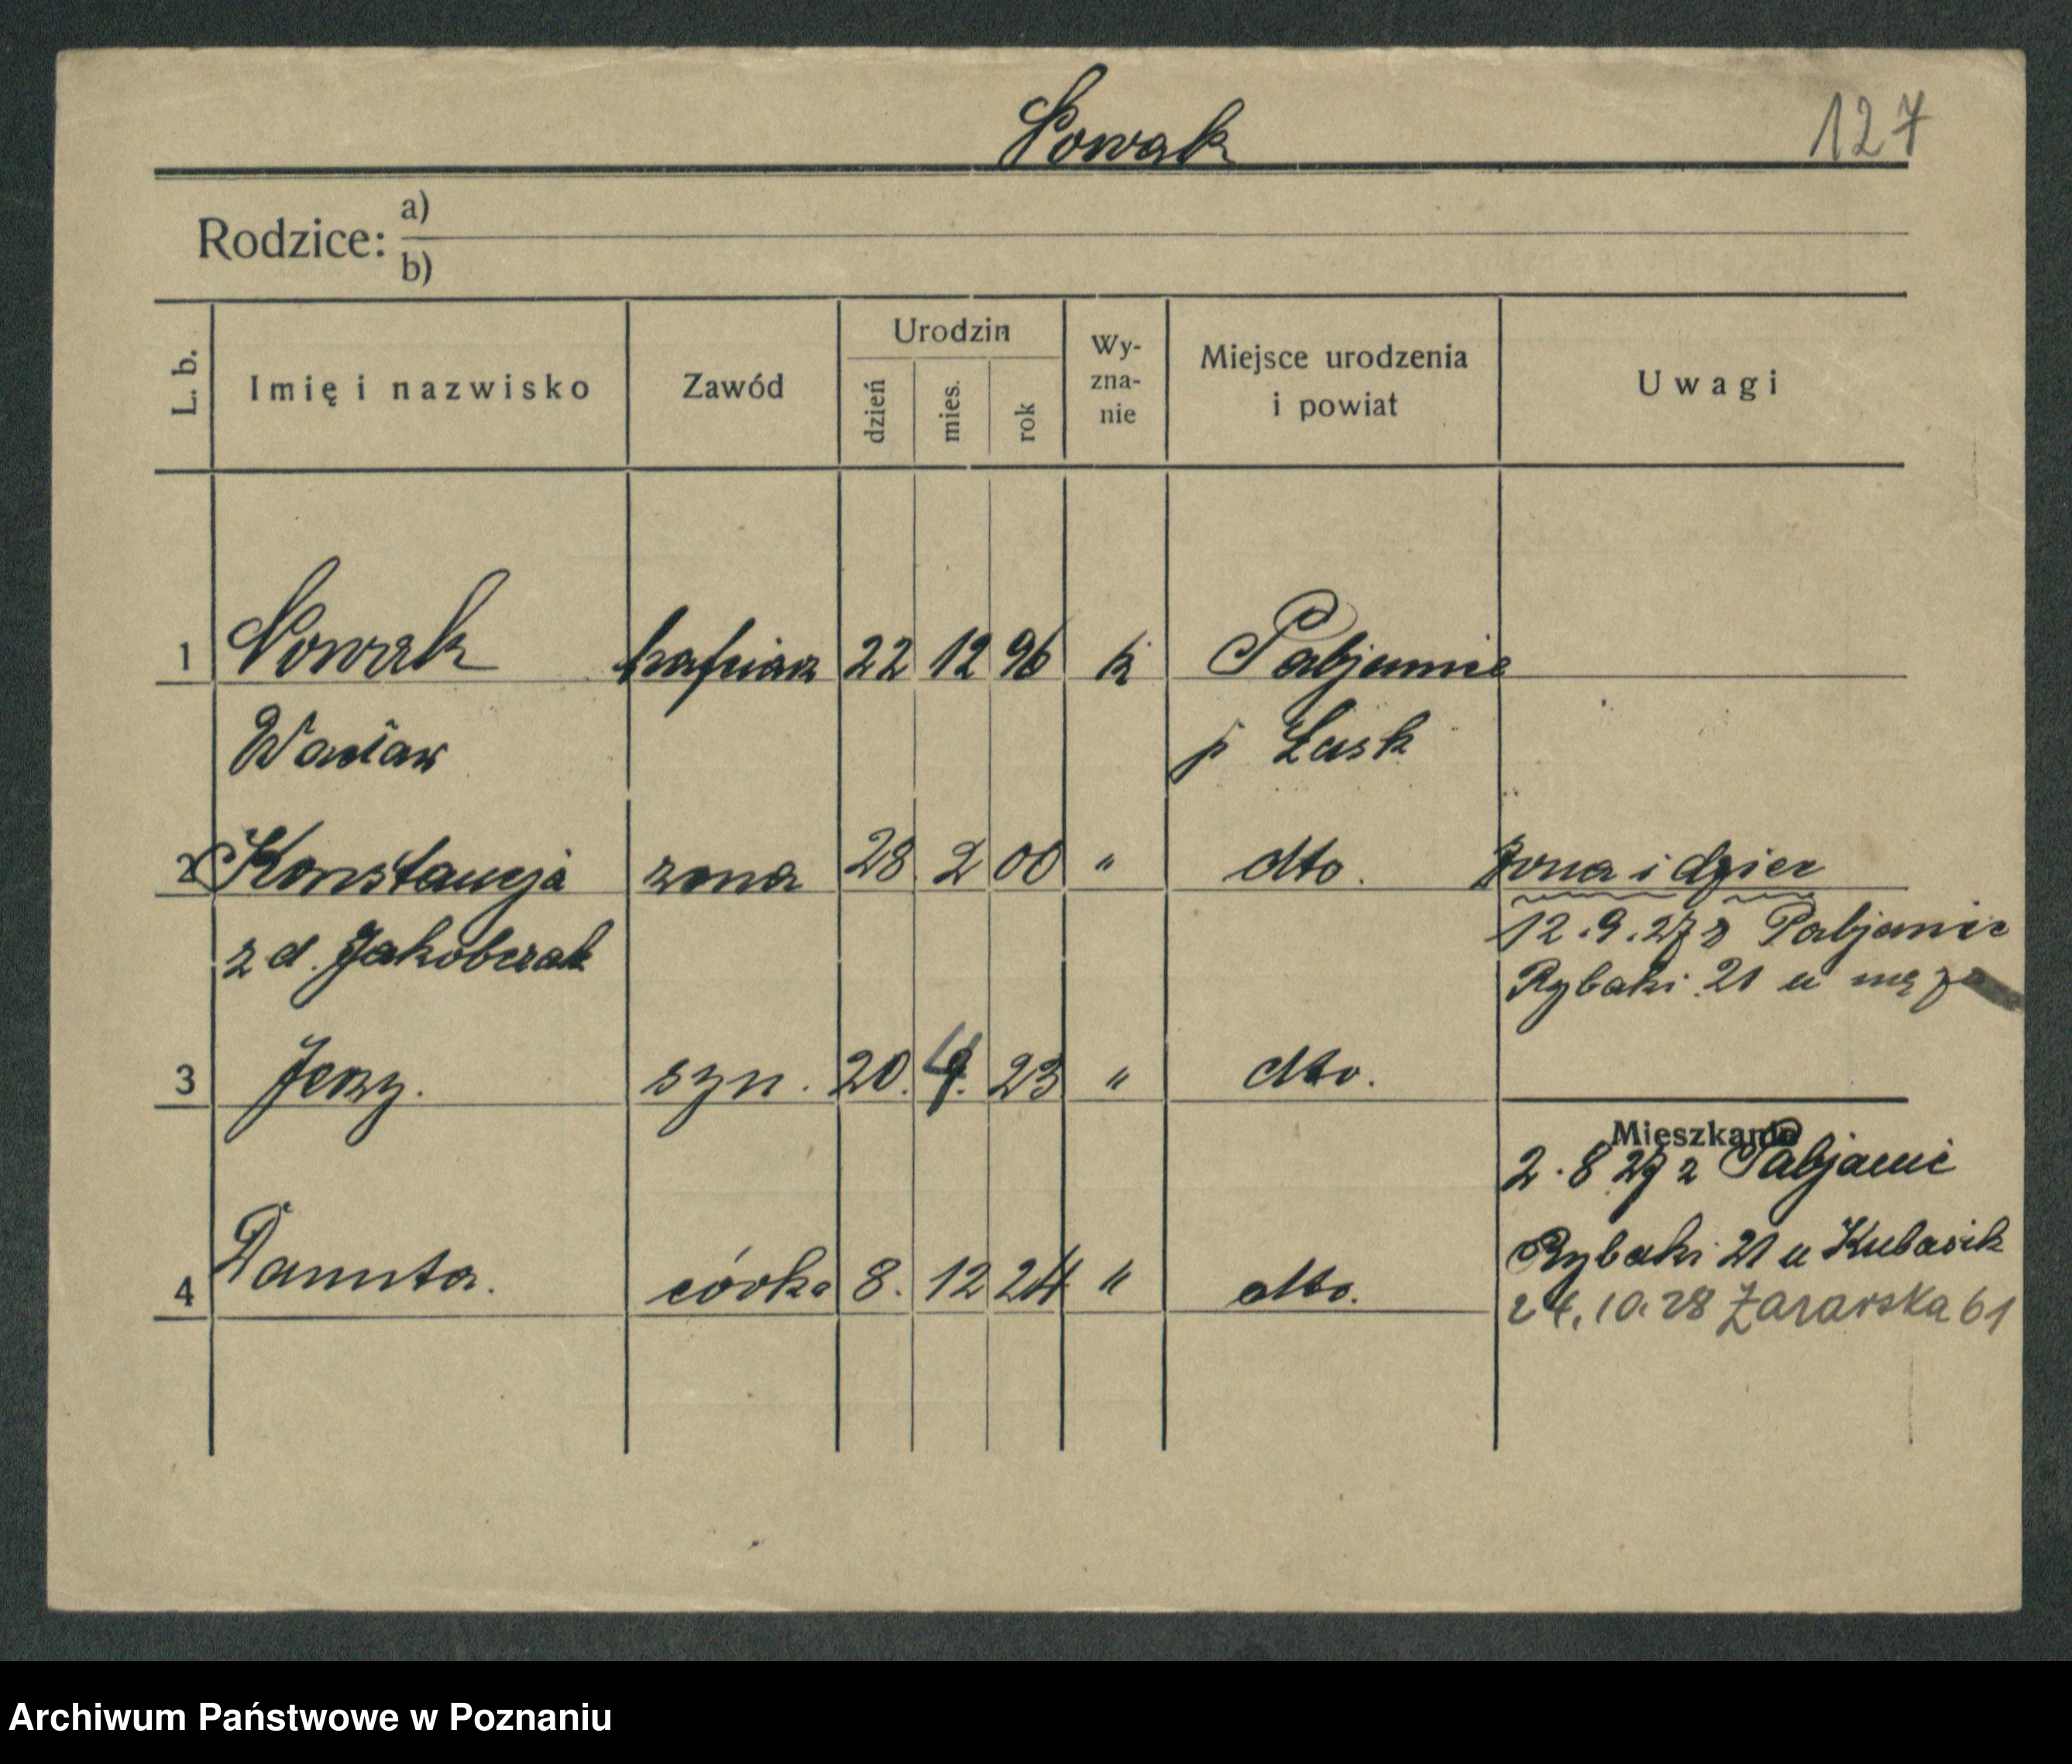 Nowak
127
Rodzice: a)
b)
L. b.
Imię i nazwisko
Zawód
Urodzin
dzień
mies.
rok
Wy-
zna-
nie
Miejsce urodzenia
i powiat
Uwagi
1 Nowak hafciarz 22 12 96 k Pabjanice
Wacław p Łask
2 Konstancja zona 28. 2 00 " dto. Zona i dzieci
z d. Jakobczak 12.9.27 z Pabjanic
Rybaki 21 u męża
3 Jerzy. syn. 20. 4. 23 " dto.
Mieszkanie
2.8 27 z Pabjanic
4 Danuta. córka 8. 12 24 " dto. Rybaki 21 u Kubasik
24.10.28 61
Archiwum Państwowe w Poznaniu